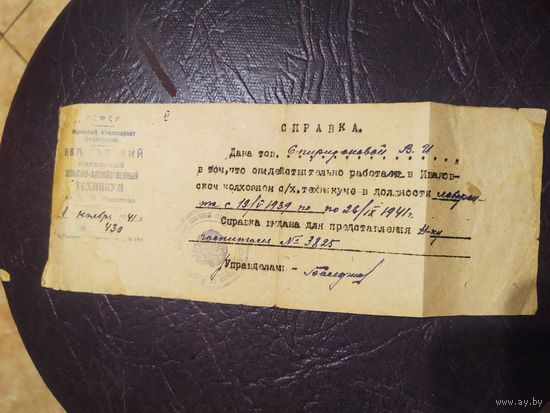 РСФСР
Народный Комиссариат
Земледелия
ИВАНОВСКИЙ
КОЛХОЗНЫЙ
СЕЛЬСКО-ХОЗЯЙСТВЕННЫЙ
ТЕХНИКУМ
ноября 1941 г.
№ 430
СПРАВКА.
Дана тов. Спиридоновой В. И
в том, что он действительно работала в Иванов-
ском колхозном с/х. техникуме в должности
с 13/VI 1939 по по 26/IX 1941 г.
Справка выдана для представления
госпиталя № 3825
Управделам: -
www.ay.by